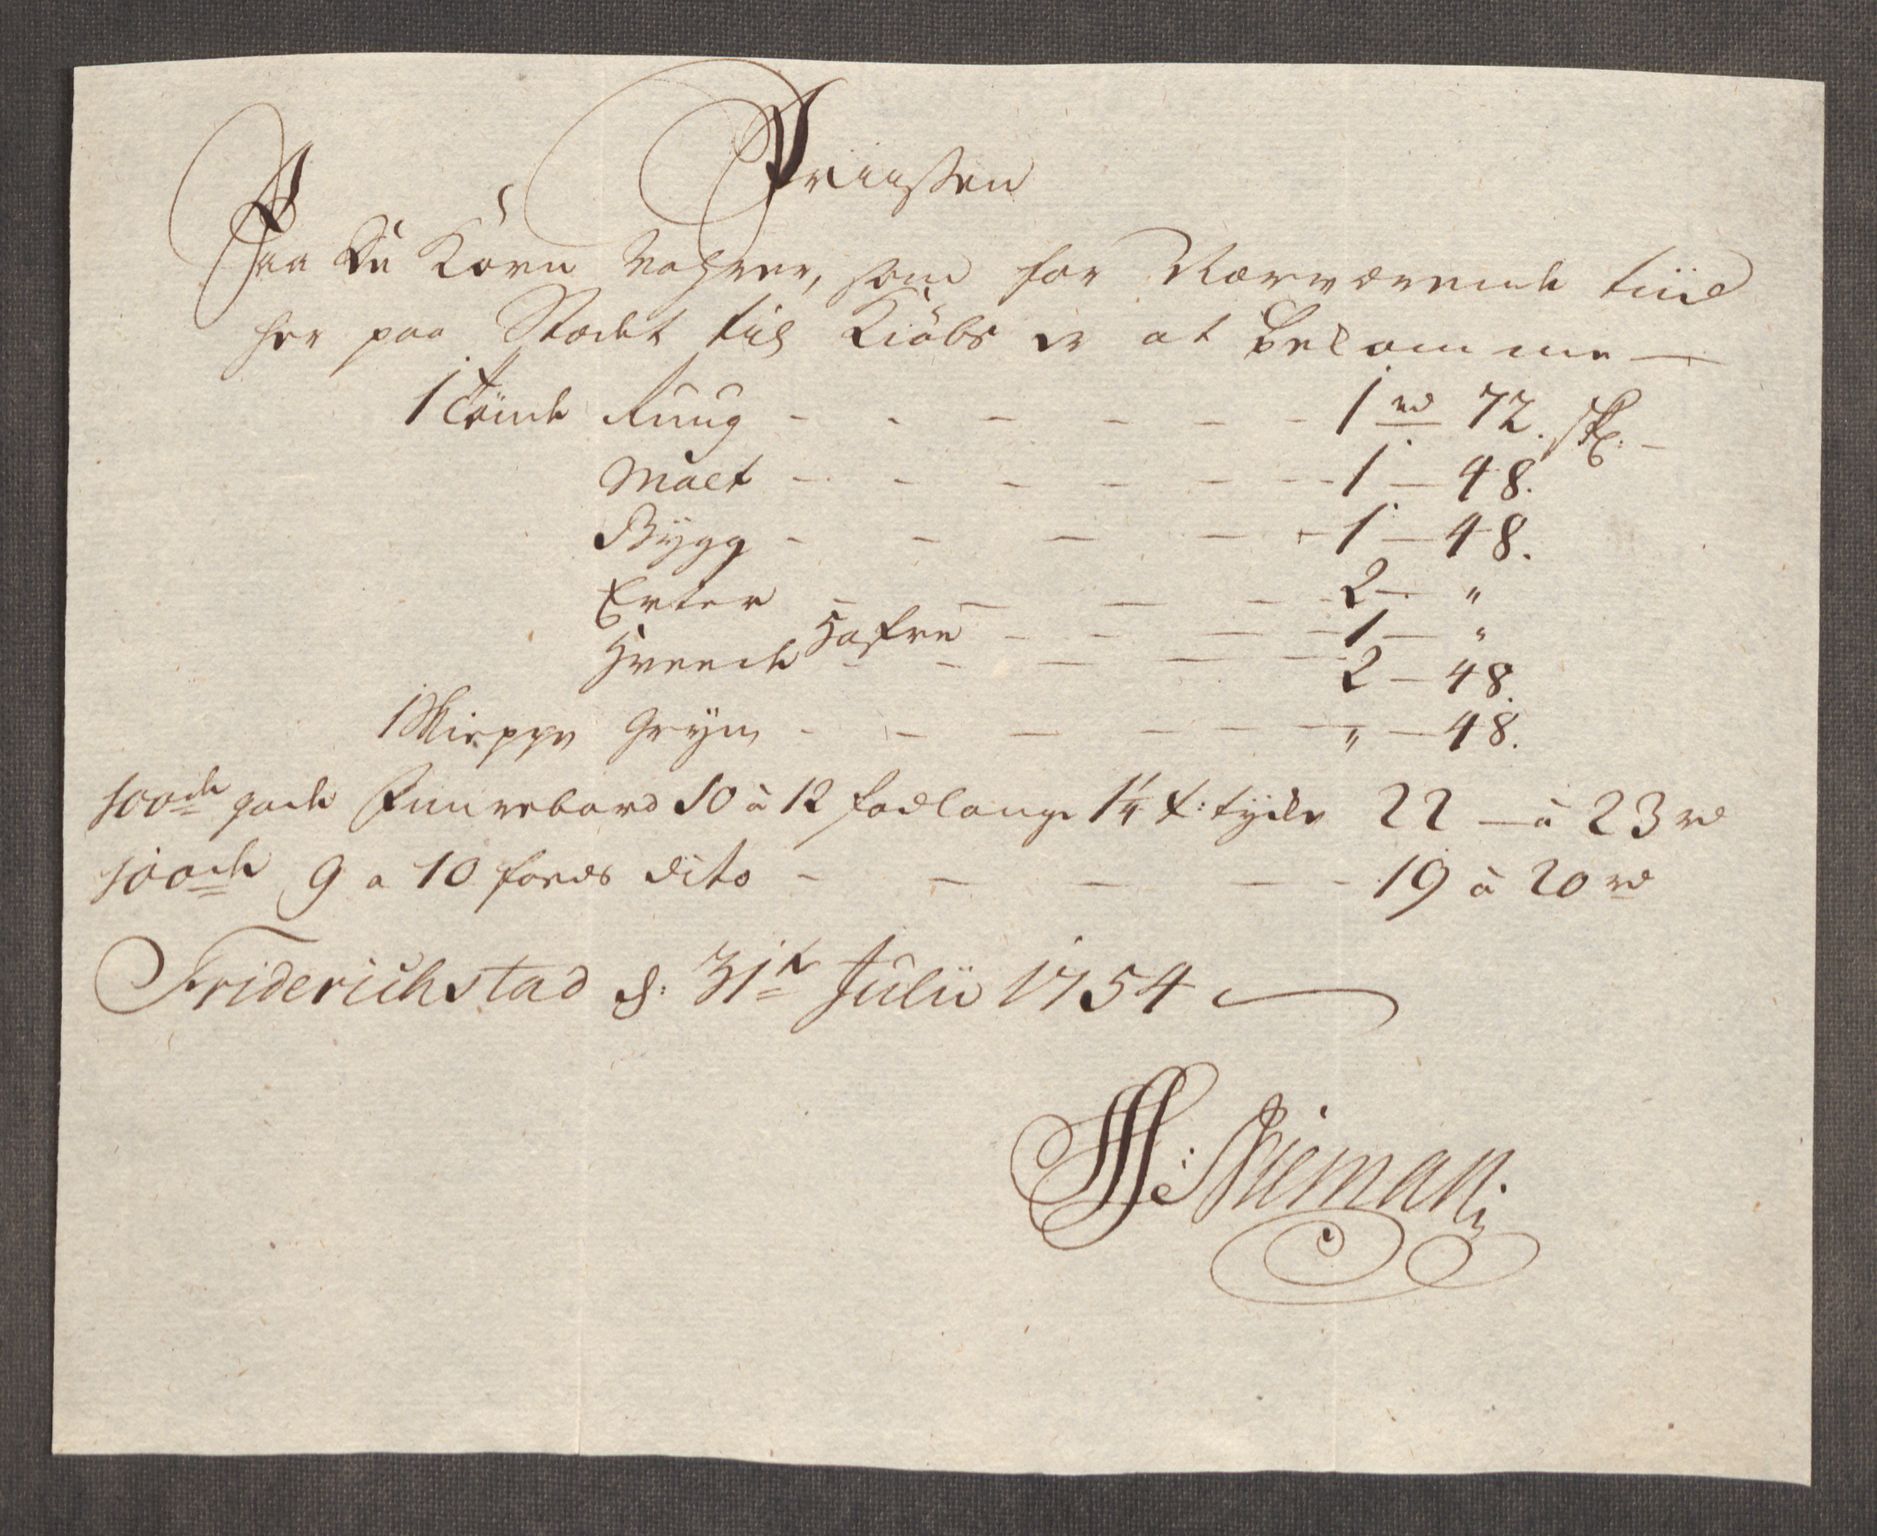 Priissen
Paa De Korn Vahrer, som for Nærværende tiid
her paa Stædet till Kiöbs er at bekomme
1 Tönde Ruug - - - - - - 1 rd 72. sk:
Malt - - - - - - 1 - 48.
Bygg - - - - - 1 - 48.
Erter - - - - - 2 - "
Hafre - - - - 1 - "
Hveede - - - - 2 - 48.
1 Skieppe Gryn - - - - - - " - 48.
100de gode Furrebord 10 à 12 fod lange 1 1/4 t: tycke 22 - à 23 rd
100de 9 a 10 foeds dito - - - - - 19 à 20 rd
Friderichstad d: 31te Julii 1754
H: Nieman